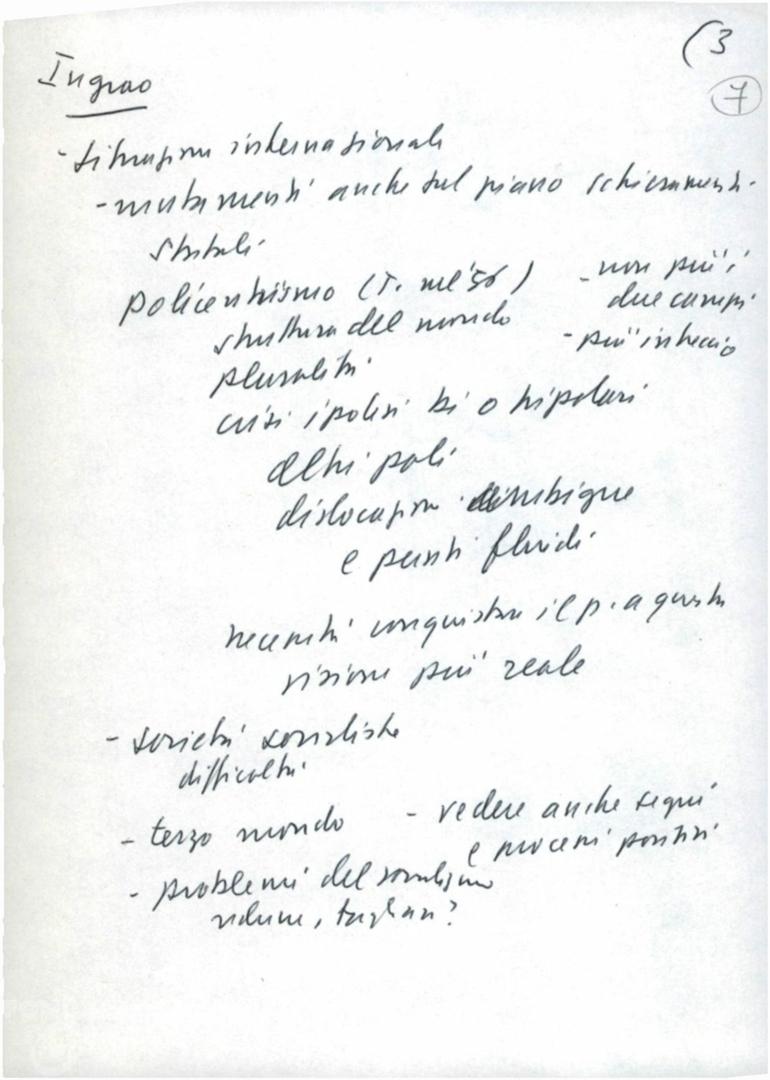 (3
7
Ingrao
- situazione internazionale
- mutamenti anche sul piano schieramenti
statuali
policentrismo (T. nel '56)
- non più i
due campi
struttura del mondo
- più intreccio
pluralità
crisi ipotesi bi o tripolari
altri poli
dislocazioni ambigue
e punti fluidi
necessità conquistare il p. a questa
visione più reale
- società socialiste
difficoltà
- terzo mondo - vedere anche segni
e processi positivi
- problemi del socialismo
ridurre, tagliare?